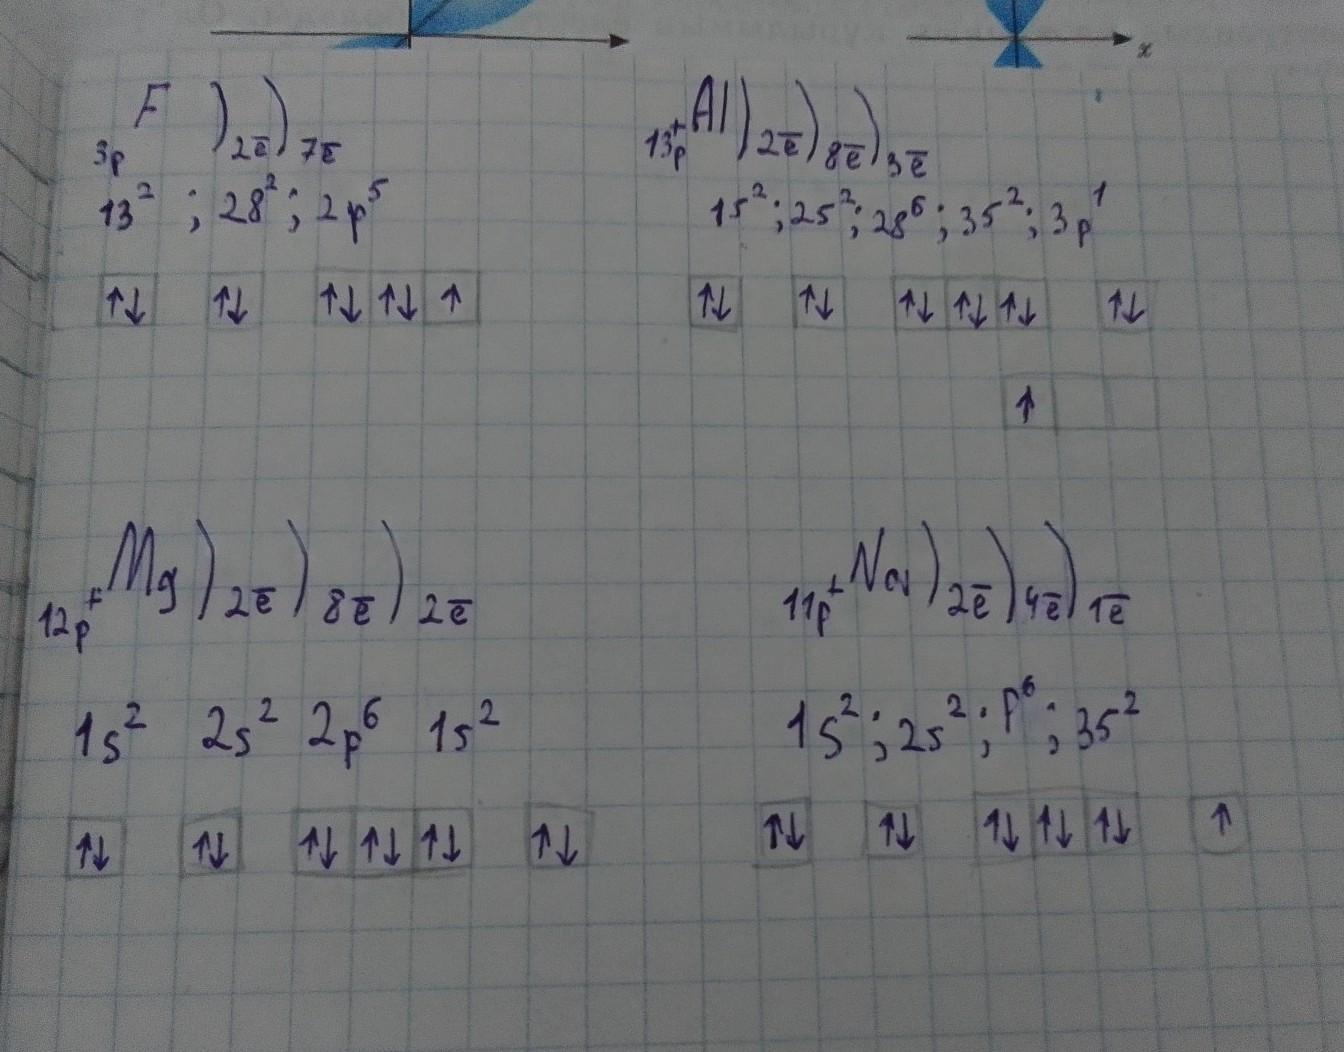 x
F )2ē)7ē
3p
13²; 28²; 2p⁵
↑↓ ↑↓ ↑↓ ↑↓ ↑
13p⁺ Al)2ē)8ē)3ē
1s²; 2s²; 28⁶; 3s²; 3p¹
↑↓ ↑↓ ↑↓ ↑↓ ↑↓ ↑↓
↑
12p⁺ Mg)2ē)8ē)2ē
1s² 2s² 2p⁶ 1s²
↑↓ ↑↓ ↑↓ ↑↓ ↑↓ ↑↓
11p⁺ Na)2ē)4ē)1ē
1s²; 2s²; p⁶; 3s²
↑↓ ↑↓ ↑↓ ↑↓ ↑↓ ↑